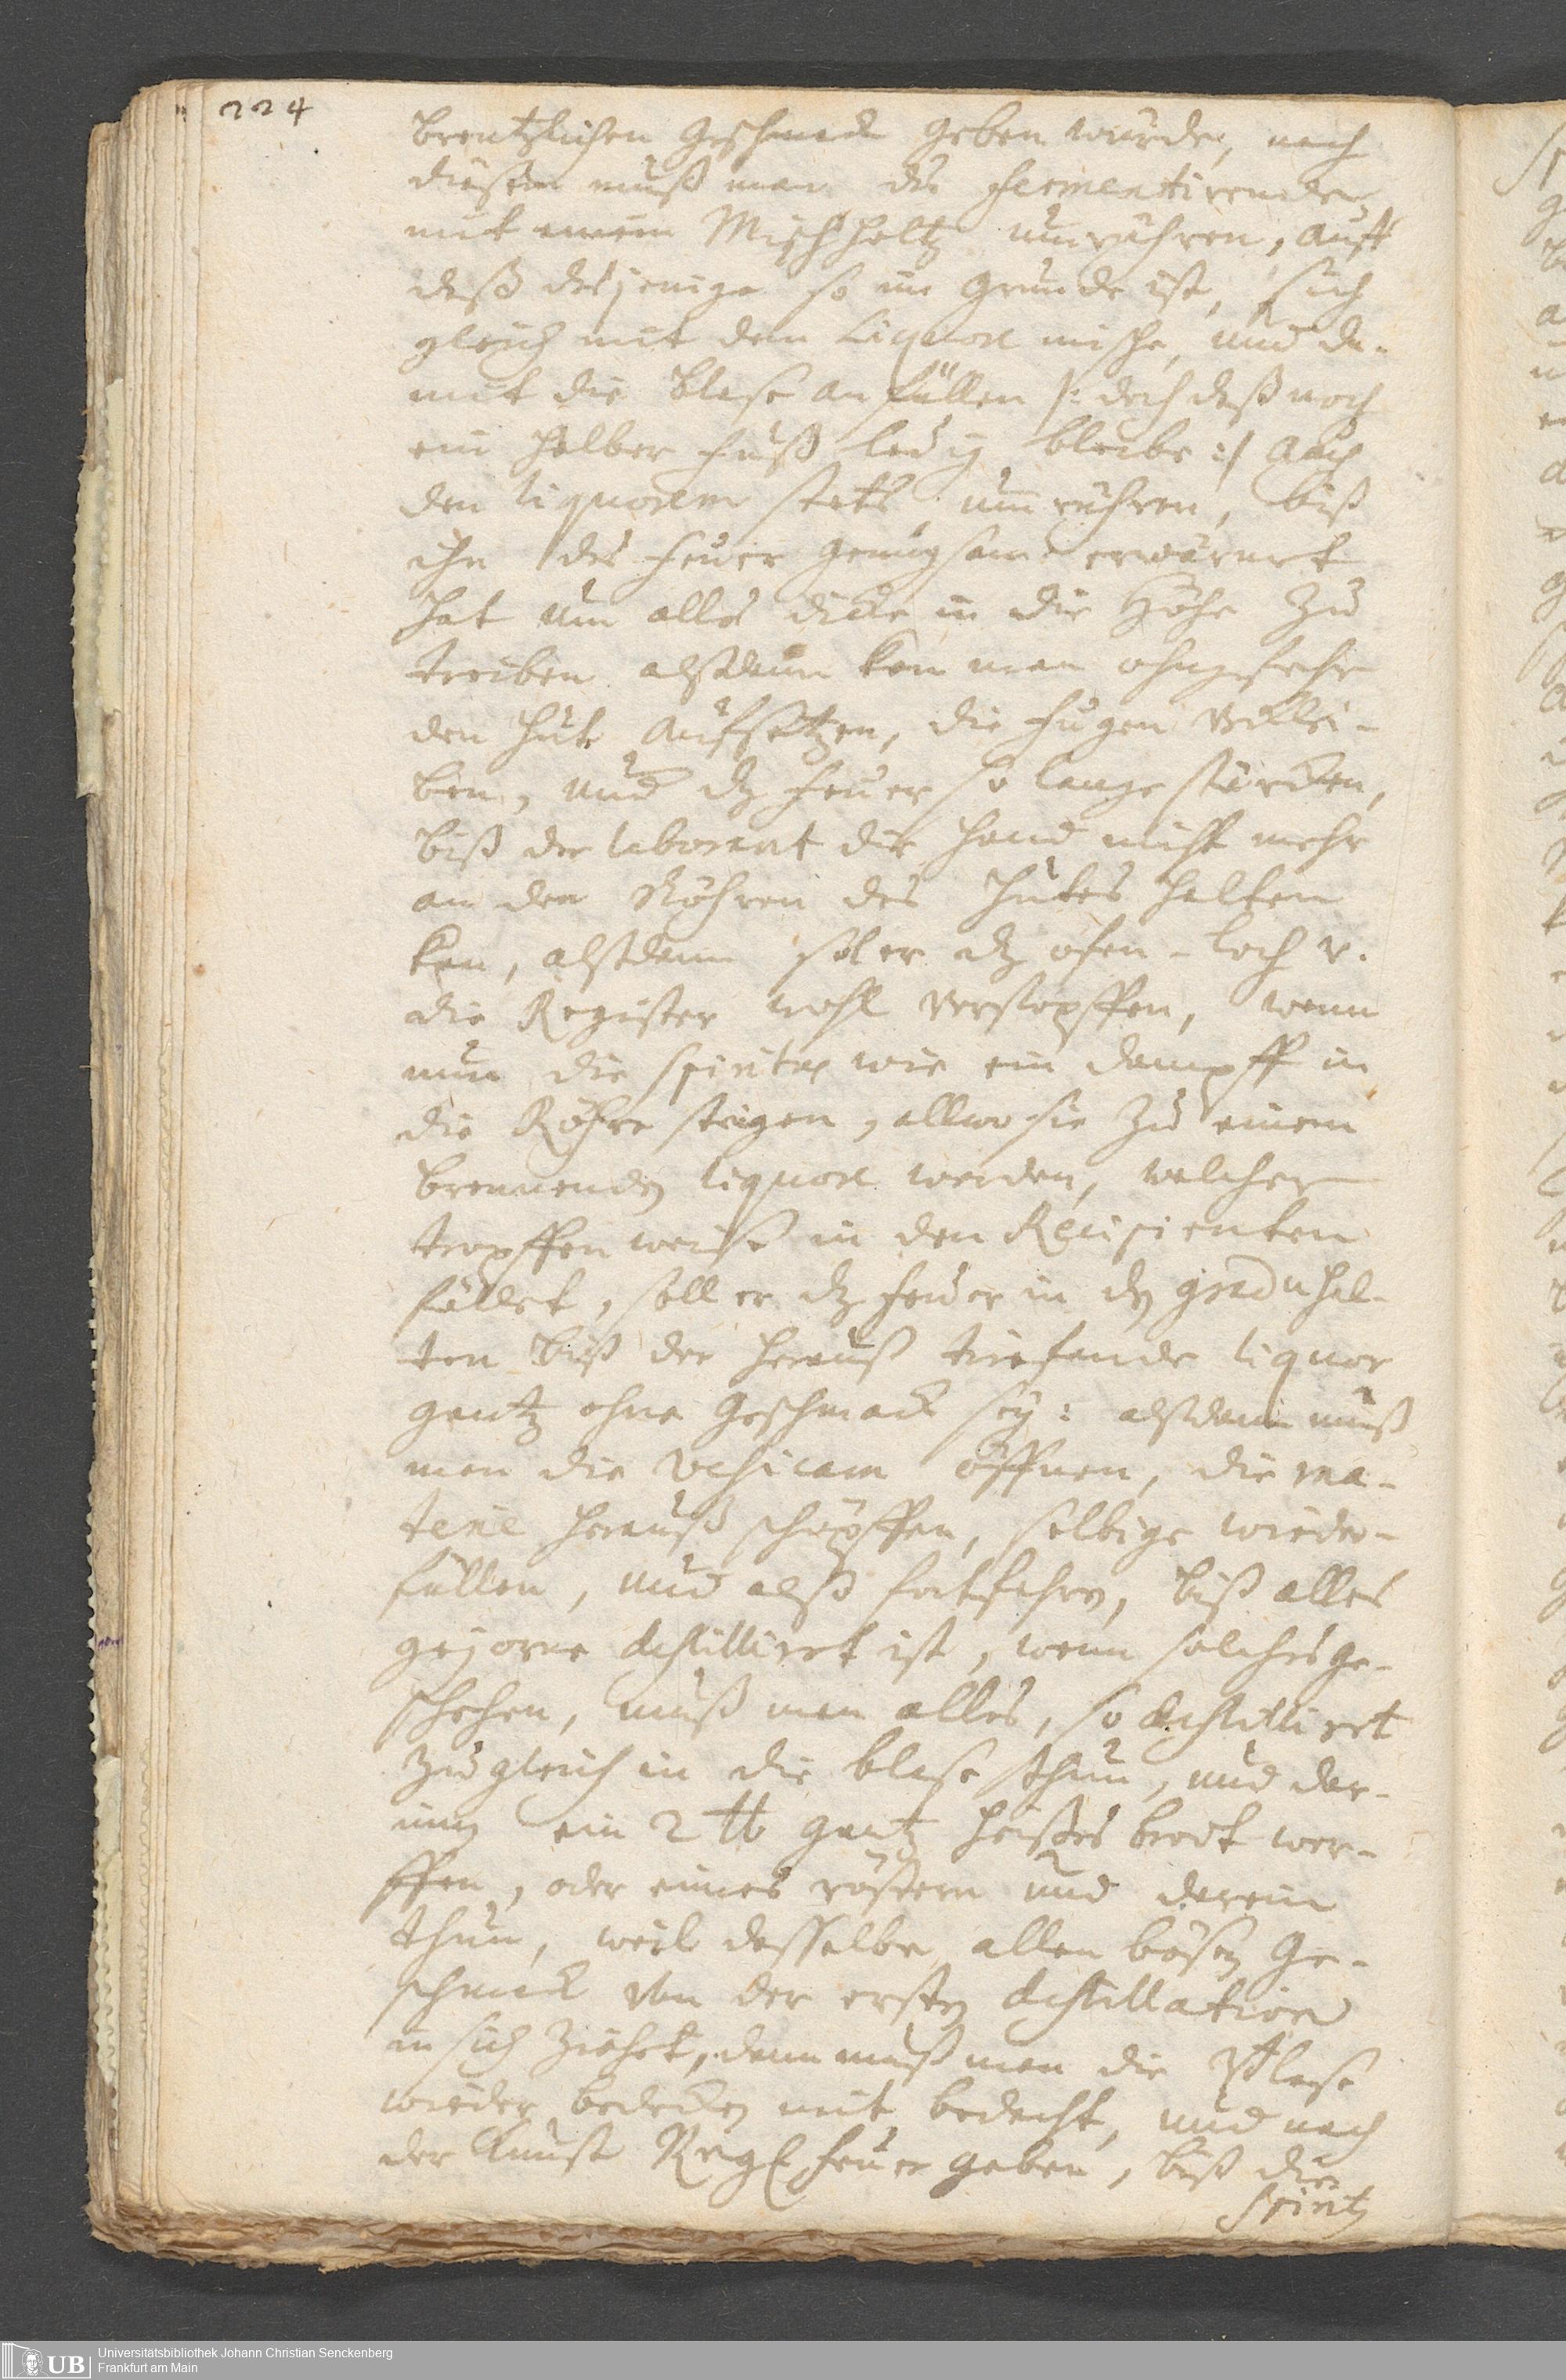 224
brentzlichen Geschmack geben würde, nach
diesem muß man die fermentirende
mit einem Mischholtz umrühren, auff
daß dasjenige so im Grunde ist, sich
gleich mit dem Liquore mische, und da-
mit die Blase anfüllen /: doch daß noch
ein halber Fuß ledig bleibe :/ Auch
den liquorem stets umrühren, biß
ihn das Feuer genugsam erwärmet
hat um alles dicke in die Höhe zu
treiben alßdann kan man ohngefehr
den Huth auffsetzen, die Fugen verklei-
ben, und dz Feuer so lange stärcken,
biß der laborant die Hand nicht mehr
an den Röhren des Hutes halten
kan, alßdann sol er dz ofen-loch v.
die Register wohl verstopffen, wenn
nun die spiritus wie ein dampff in
die Röhre steigen, allwo sie zu einem
brennenden liquore werden, welcher
tropffen weise in den Recipienten
fället, soll er dz Feuer in dem gradu hal-
ten biß der herauß trieffende liquor
gantz ohne Geschmack sey: alßdann muß
man die Vesicam öffnen, die ma-
terie herauß schöpffen, selbige wieder
füllen, und alß fortfahren, biß alles
gejorne destilliret ist, wenn solches ge-
schehen, muß man alles, so destilliret
zugleich in die blase thun, und dar-
innen ein 2 ℔ gantz heißes brodt wer-
ffen, oder eines rösten und darein
thun, weil dasselbe allen bösen Ge-
schmack von der ersten destillation
in sich ziehet, dann muß man die Blase
wieder bedecken mit bedacht, und nach
der Kunst Regel Feuer geben, biß die
spiritus
Universitätsbibliothek Johann Christian Senckenberg
Frankfurt am Main
UB